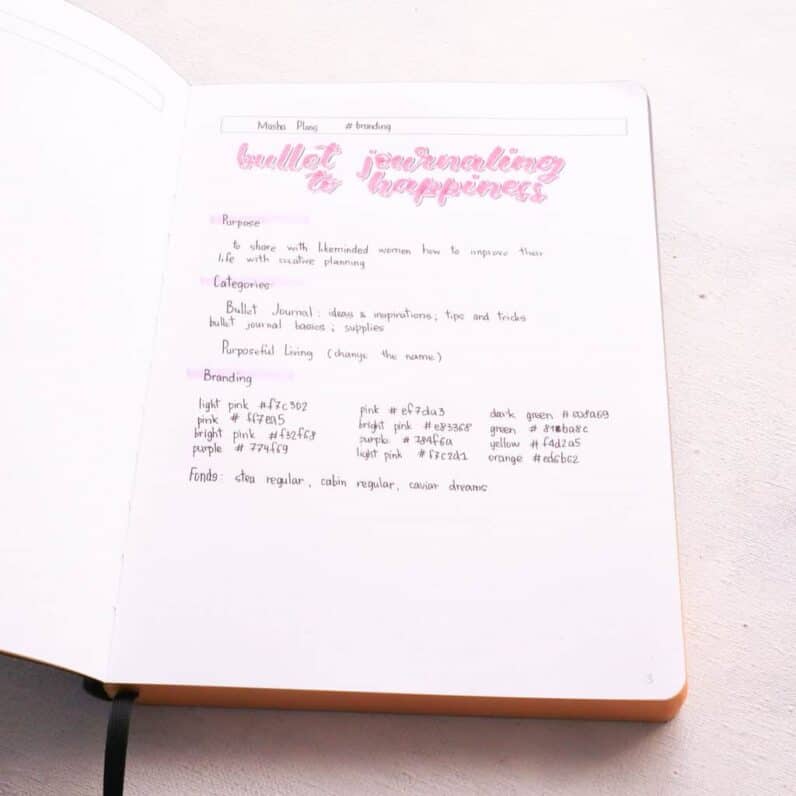 Masha Plans #branding
bullet journaling
to happiness
Purpose
to share with likeminded women how to improve their
life with creative planning
Categories
Bullet Journal: ideas & inspirations; tips and tricks
bullet journal basics; supplies
Purposeful Living (change the name)
Branding
light pink #f7c302
pink # ff7ea5
bright pink #f32f68
purple #774f69
pink #ef7da3
bright pink #e83368
purple #784f6a
light pink #f7c2d1
dark green
green
yellow #f4d2a5
orange #ed6bc2
Fonds: stea regular, cabin regular, caviar dreams
3